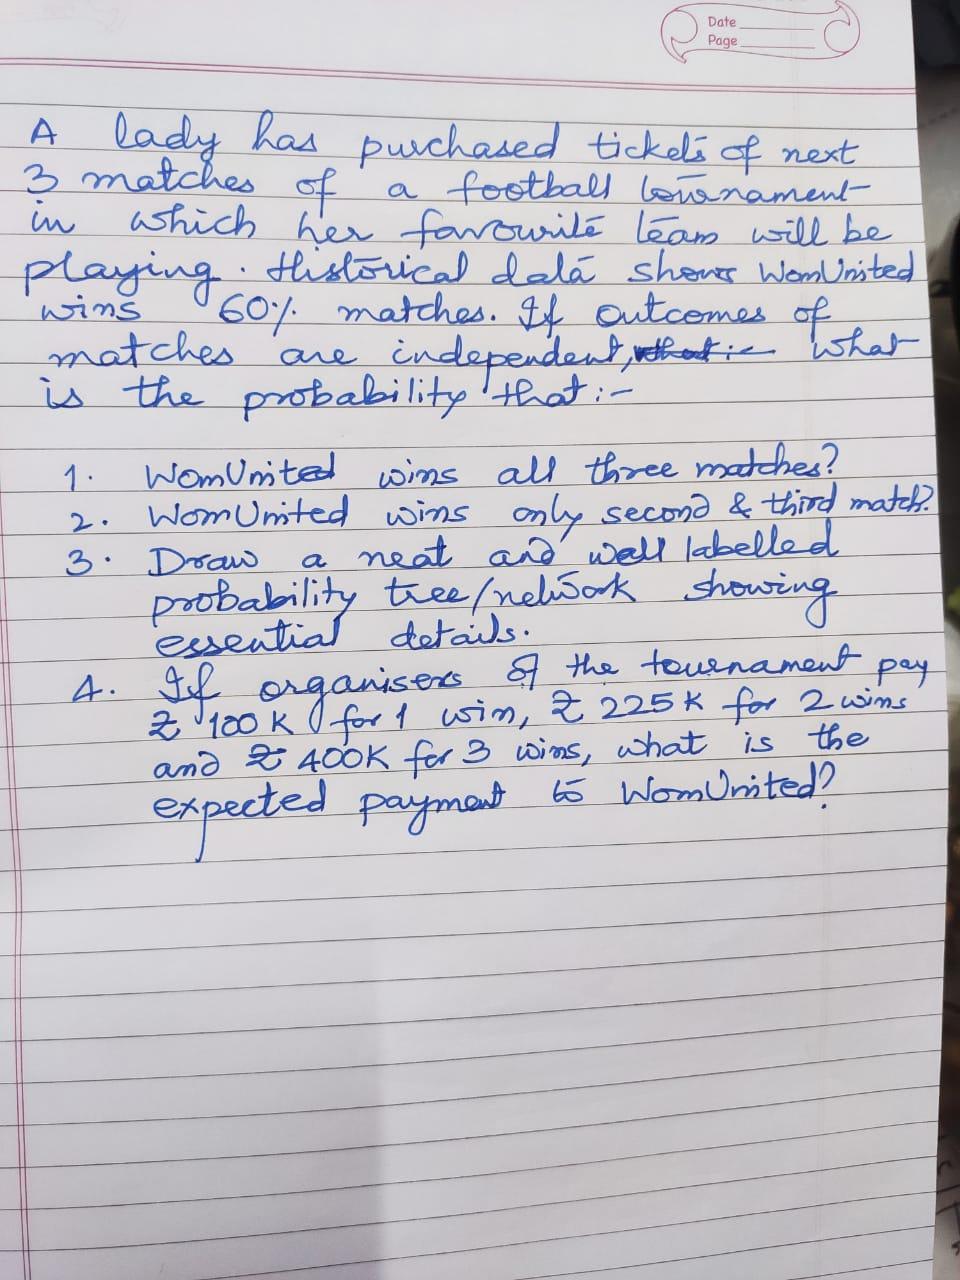 Date
Page
A lady has purchased tickets of next
3 matches of a football tournament
in which her favourite team will be
playing. Historical data shows WomUnited
wins 60% matches. If outcomes of
matches are independent, what
is the probability that :-
1. WomUnited wins all three matches?
2. WomUnited wins only second & third match?
3. Draw a neat and well labelled
probability tree/network showing
essential details.
4. If organisers of the tournament pay
₹ 100K for 1 win, ₹ 225K for 2 wins
and ₹ 400K for 3 wins, what is the
expected payment to WomUnited?